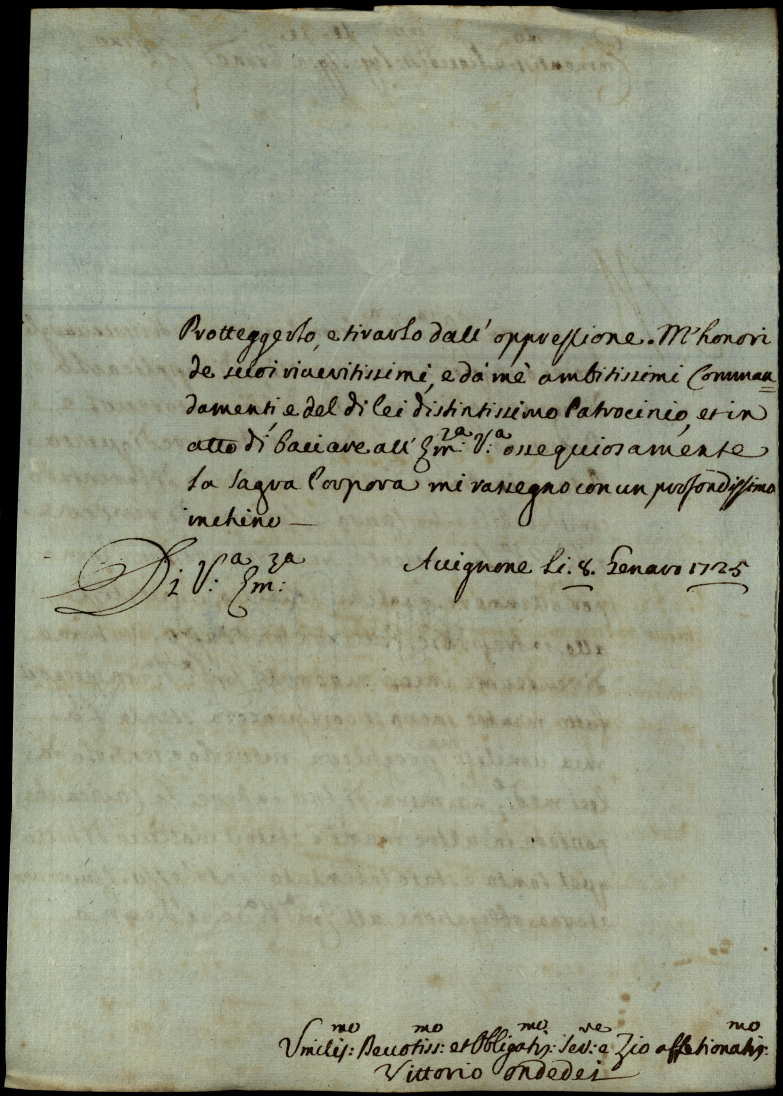 Protteggerlo, e tirarlo dall' oppressione. M'honori
de suoi riveritissimi, e da mè ambitissimi Comman=
damenti e del di lei distintissimo Patrocinio, et in
atto di baciare all' Em:za V:a ossequiosamente
la Sagra Porpora mi rassegno con un profondissimo
inchino —
Di V:a Em:za Avignone li. 8. Genaro 1725
Umiliss:mo Devotiss:mo et Obligatiss:mo Ser:re e Zio affetionatiss:mo
Vittorio Ondedei